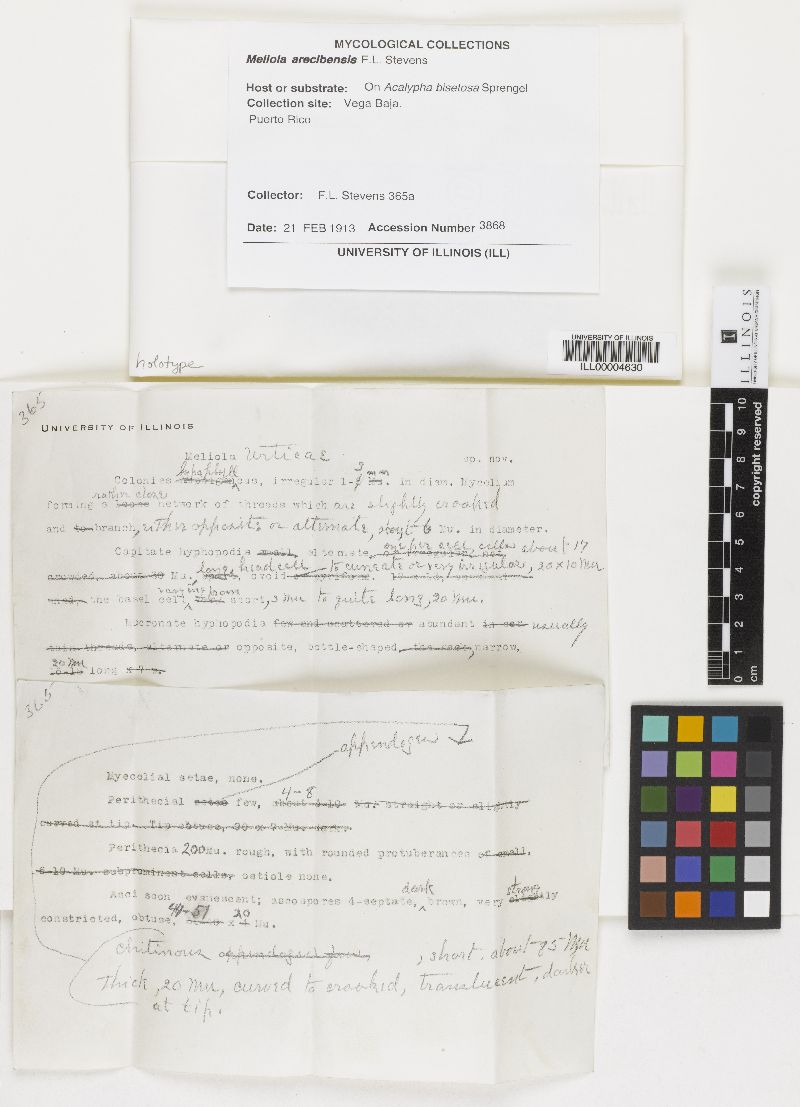 MYCOLOGICAL COLLECTIONS
Meliola arecibensis F.L. Stevens
Host or substrate: On Acalypha bisetosa Sprengel
Collection site: Vega Baja.
Puerto Rico
Collector: F.L. Stevens 365a
Date: 21 FEB 1913 Accession Number 3868
UNIVERSITY OF ILLINOIS (ILL)
holotype
UNIVERSITY OF ILLINOIS
ILL00004630
ILLINOIS
0 1 2 3 4 5 6 7 8 9 10
cm
copyright reserved
365
UNIVERSITY OF ILLINOIS
Meliola Urticae sp. nov.
Colonies irregular 1-3 mm. in diam. Mycelium
rather close
forming a network of threads which are slightly crooked
and branch, either opposite or alternate, about 6 Mu. in diameter.
one per cell
Capitate hyphopodia small, alternate, about 17
crowded, about Mu. long, head cell ovoid to cuneate or very irregular, 20 x 10 Mu
varying from
the basel cell short, 3 Mu to quite long, 20 Mu.
Mucronate hyphopodia few and scattered or abundant usually
alternate or opposite, bottle-shaped, narrow,
20 Mu
long x 7 u.
365
appendages
Mycelial setae, none.
4-8
Perithecial setae few, about Mu. straight or slightly
curved at tip. Tip obtuse,
Perithecia 200 Mu. rough, with rounded protuberances or small,
6-10 Mu. subprominent ostiole none.
dark strong
Asci soon evanescent; ascospores 4-septate, brown, very ly
20
constricted, obtuse, x Mu.
chitinous , short, about 85 Mu
thick, 20 Mu, curved to crooked, translucent, darker
at tip.